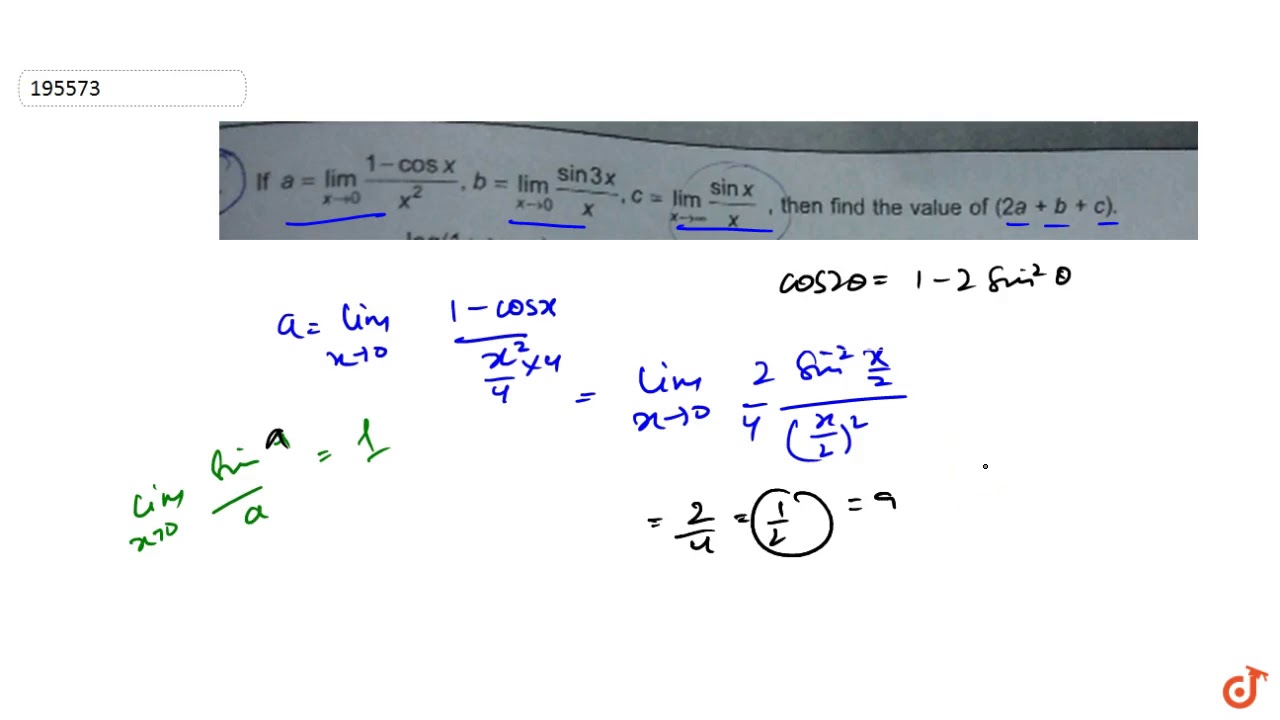 195573
If a = lim x→0 1−cos x / x², b = lim x→0 sin3x / x, c = lim x→∞ sin x / x, then find the value of (2a + b + c).
cos2θ = 1 − 2 sin² θ
a = lim x→0 1 − cosx / x²/4 × 4
= lim x→0 2/4 sin² x/2 / (x/2)²
lim x→0 sin a / a = 1
= 2/4 = 1/2 = a